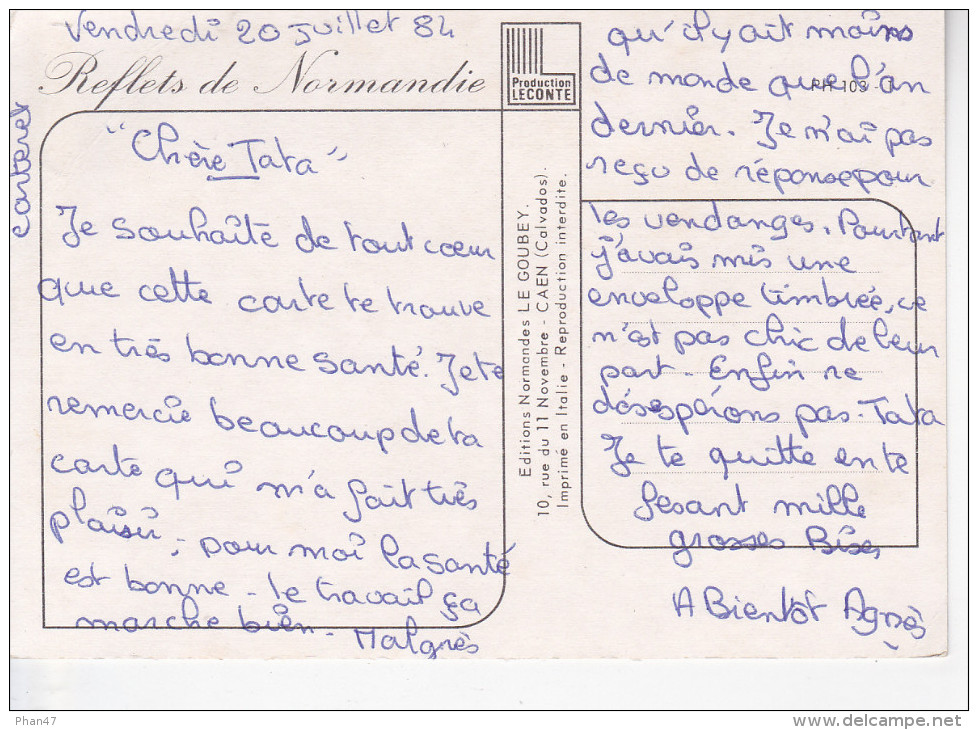 Vendredi 20 juillet 84
Reflets de Normandie
Production
LECONTE
Carteret
"Chère Tata"
Je souhaite de tout cœur
que cette carte te trouve
en très bonne santé. Je te
remercie beaucoup de ta
carte qui m'a fait très
plaisir, pour moi la santé
est bonne - le travail ça
marche bien - Malgrès
Editions Normandes LE GOUBEY.
10, rue du 11 Novembre - CAEN (Calvados).
Imprimé en Italie - Reproduction interdite.
qu'il y ait moins
de monde que l'an
dernier. Je n'ai pas
reçu de réponse pour
les vendanges. Pourtant
j'avais mis une
enveloppe timbrée, ce
n'est pas chic de leur
part - Enfin ne
désespérons pas - Tata
Je te quitte en te
fesant mille
grosses Bises
A Bientôt Agnès
Phan47
delcampe.net